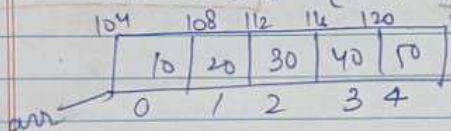 104 108 112 116 120
10 20 30 40 50
arr 0 1 2 3 4